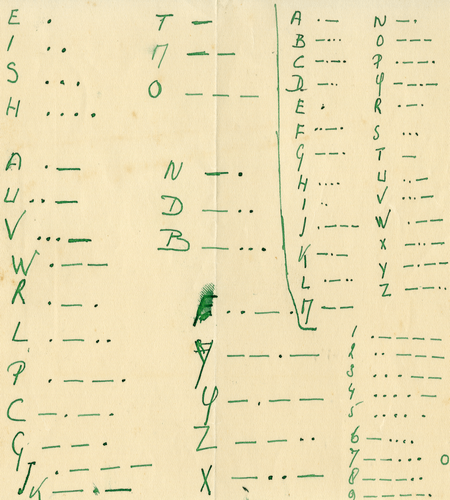 E .
I ..
S ...
H ....
A . —
U .. —
V ... —
W . — —
R . — .
L . — ..
P . — — .
C — . — .
G — — .
J . — — —
K — . —
T —
M — —
O — — —
N — .
D — ..
B — ...
Y — . — —
Z — — ..
X — .. —
A . —
B — ...
C — . — .
D — ..
E .
F .. — .
G — — .
H ....
I ..
J . — — —
K — . —
L . — ..
M — —
N — .
O — — —
P . — — .
R . — .
S ...
T —
U .. —
V ... —
W . — —
X — .. —
Y — . — —
Z — — ..
1 . — — — —
2 .. — — —
3 ... — —
4 .... —
5 .....
6 — ....
7 — — ...
8 — — — ..
9 — — — — .
0